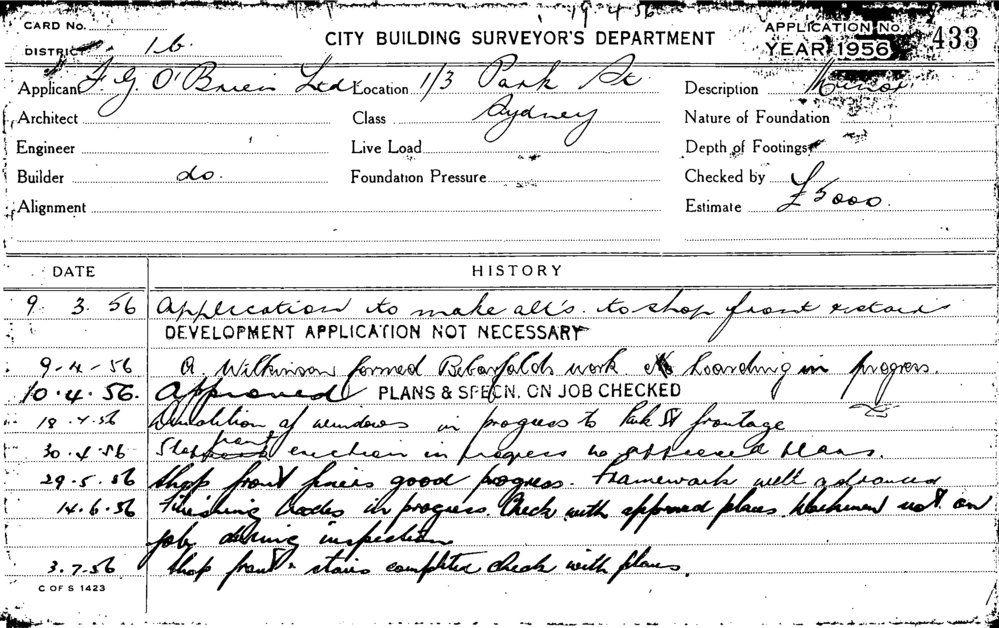 19-4-56
CARD No.
DISTRICT 1b.
CITY BUILDING SURVEYOR'S DEPARTMENT
APPLICATION No. 433
YEAR 1956
Applicant F. G O'Brien Ltd Location 1/3 Park St Description Minor
Architect Class Sydney Nature of Foundation
Engineer Live Load Depth of Footings
Builder do. Foundation Pressure Checked by
Alignment Estimate £5000.
DATE HISTORY
9. 3. 56 Application to make alt's. to shop front & stairs
DEVELOPMENT APPLICATION NOT NECESSARY
9-4-56 A. Wilkinson formed Bebarfalds work Hoarding in progress.
10.4.56. Approved PLANS & SPECN. ON JOB CHECKED
18.4.56 Demolition of windows in progress to Park St frontage
30.4.56 front erection in progress to approved plans.
29.5.56 Shop front piers good progress. Framework well advanced
14.6.56 Finishing trades in progress. Check with approved plans. Workmen not on
job during inspection
3.7.56 Shop front & stairs completed check with plans.
C OF S 1423